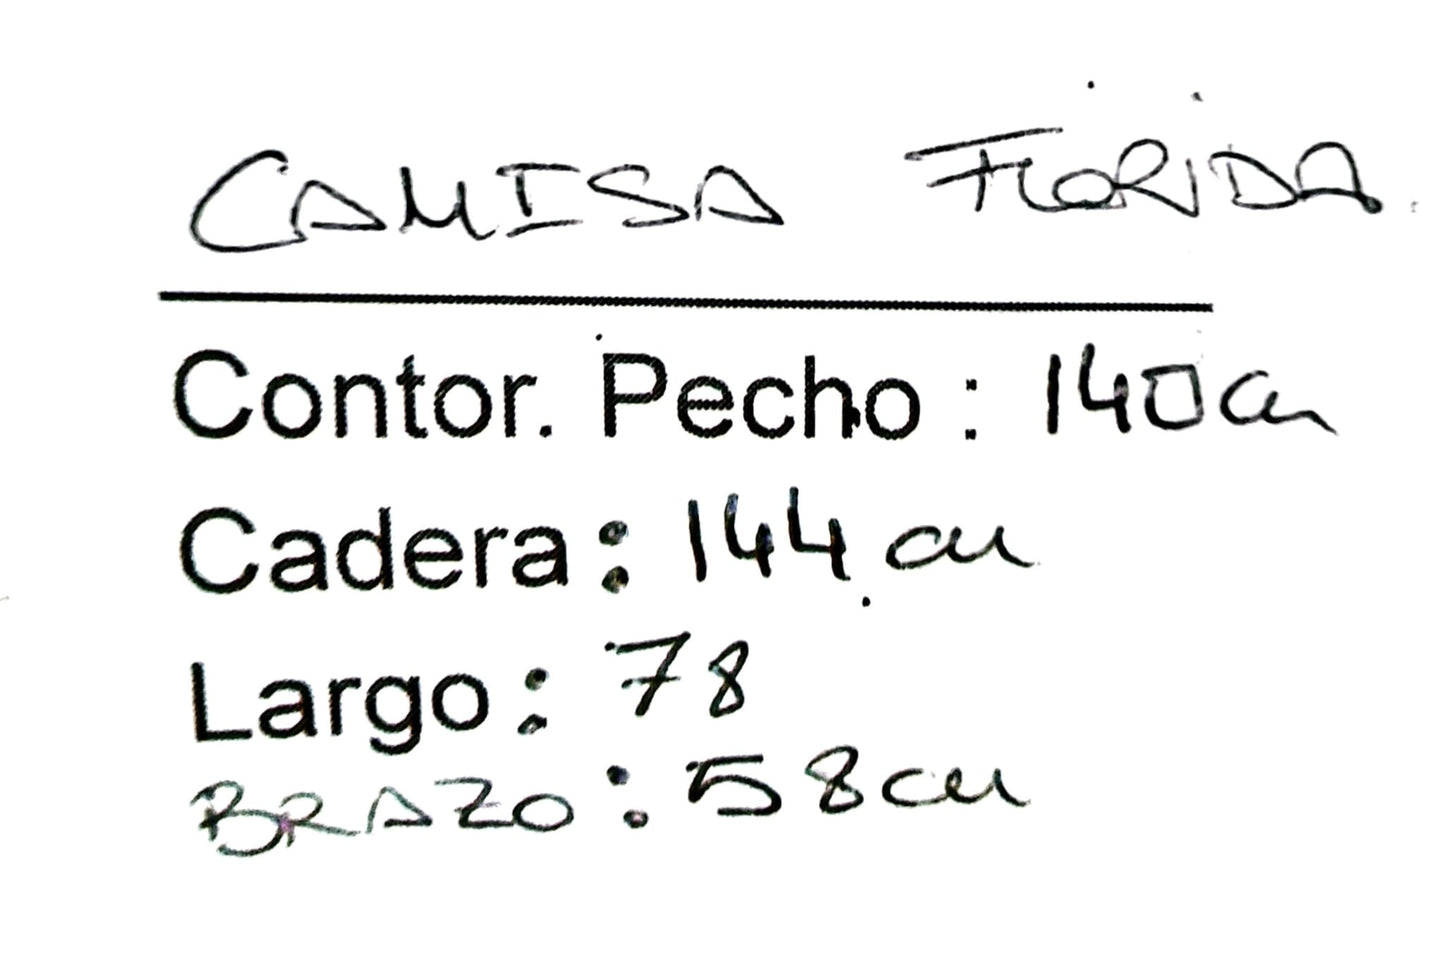 CAMISA FLORIDA.
Contor. Pecho : 140cm
Cadera : 144 cm
Largo : 78
BRAZO : 58cm